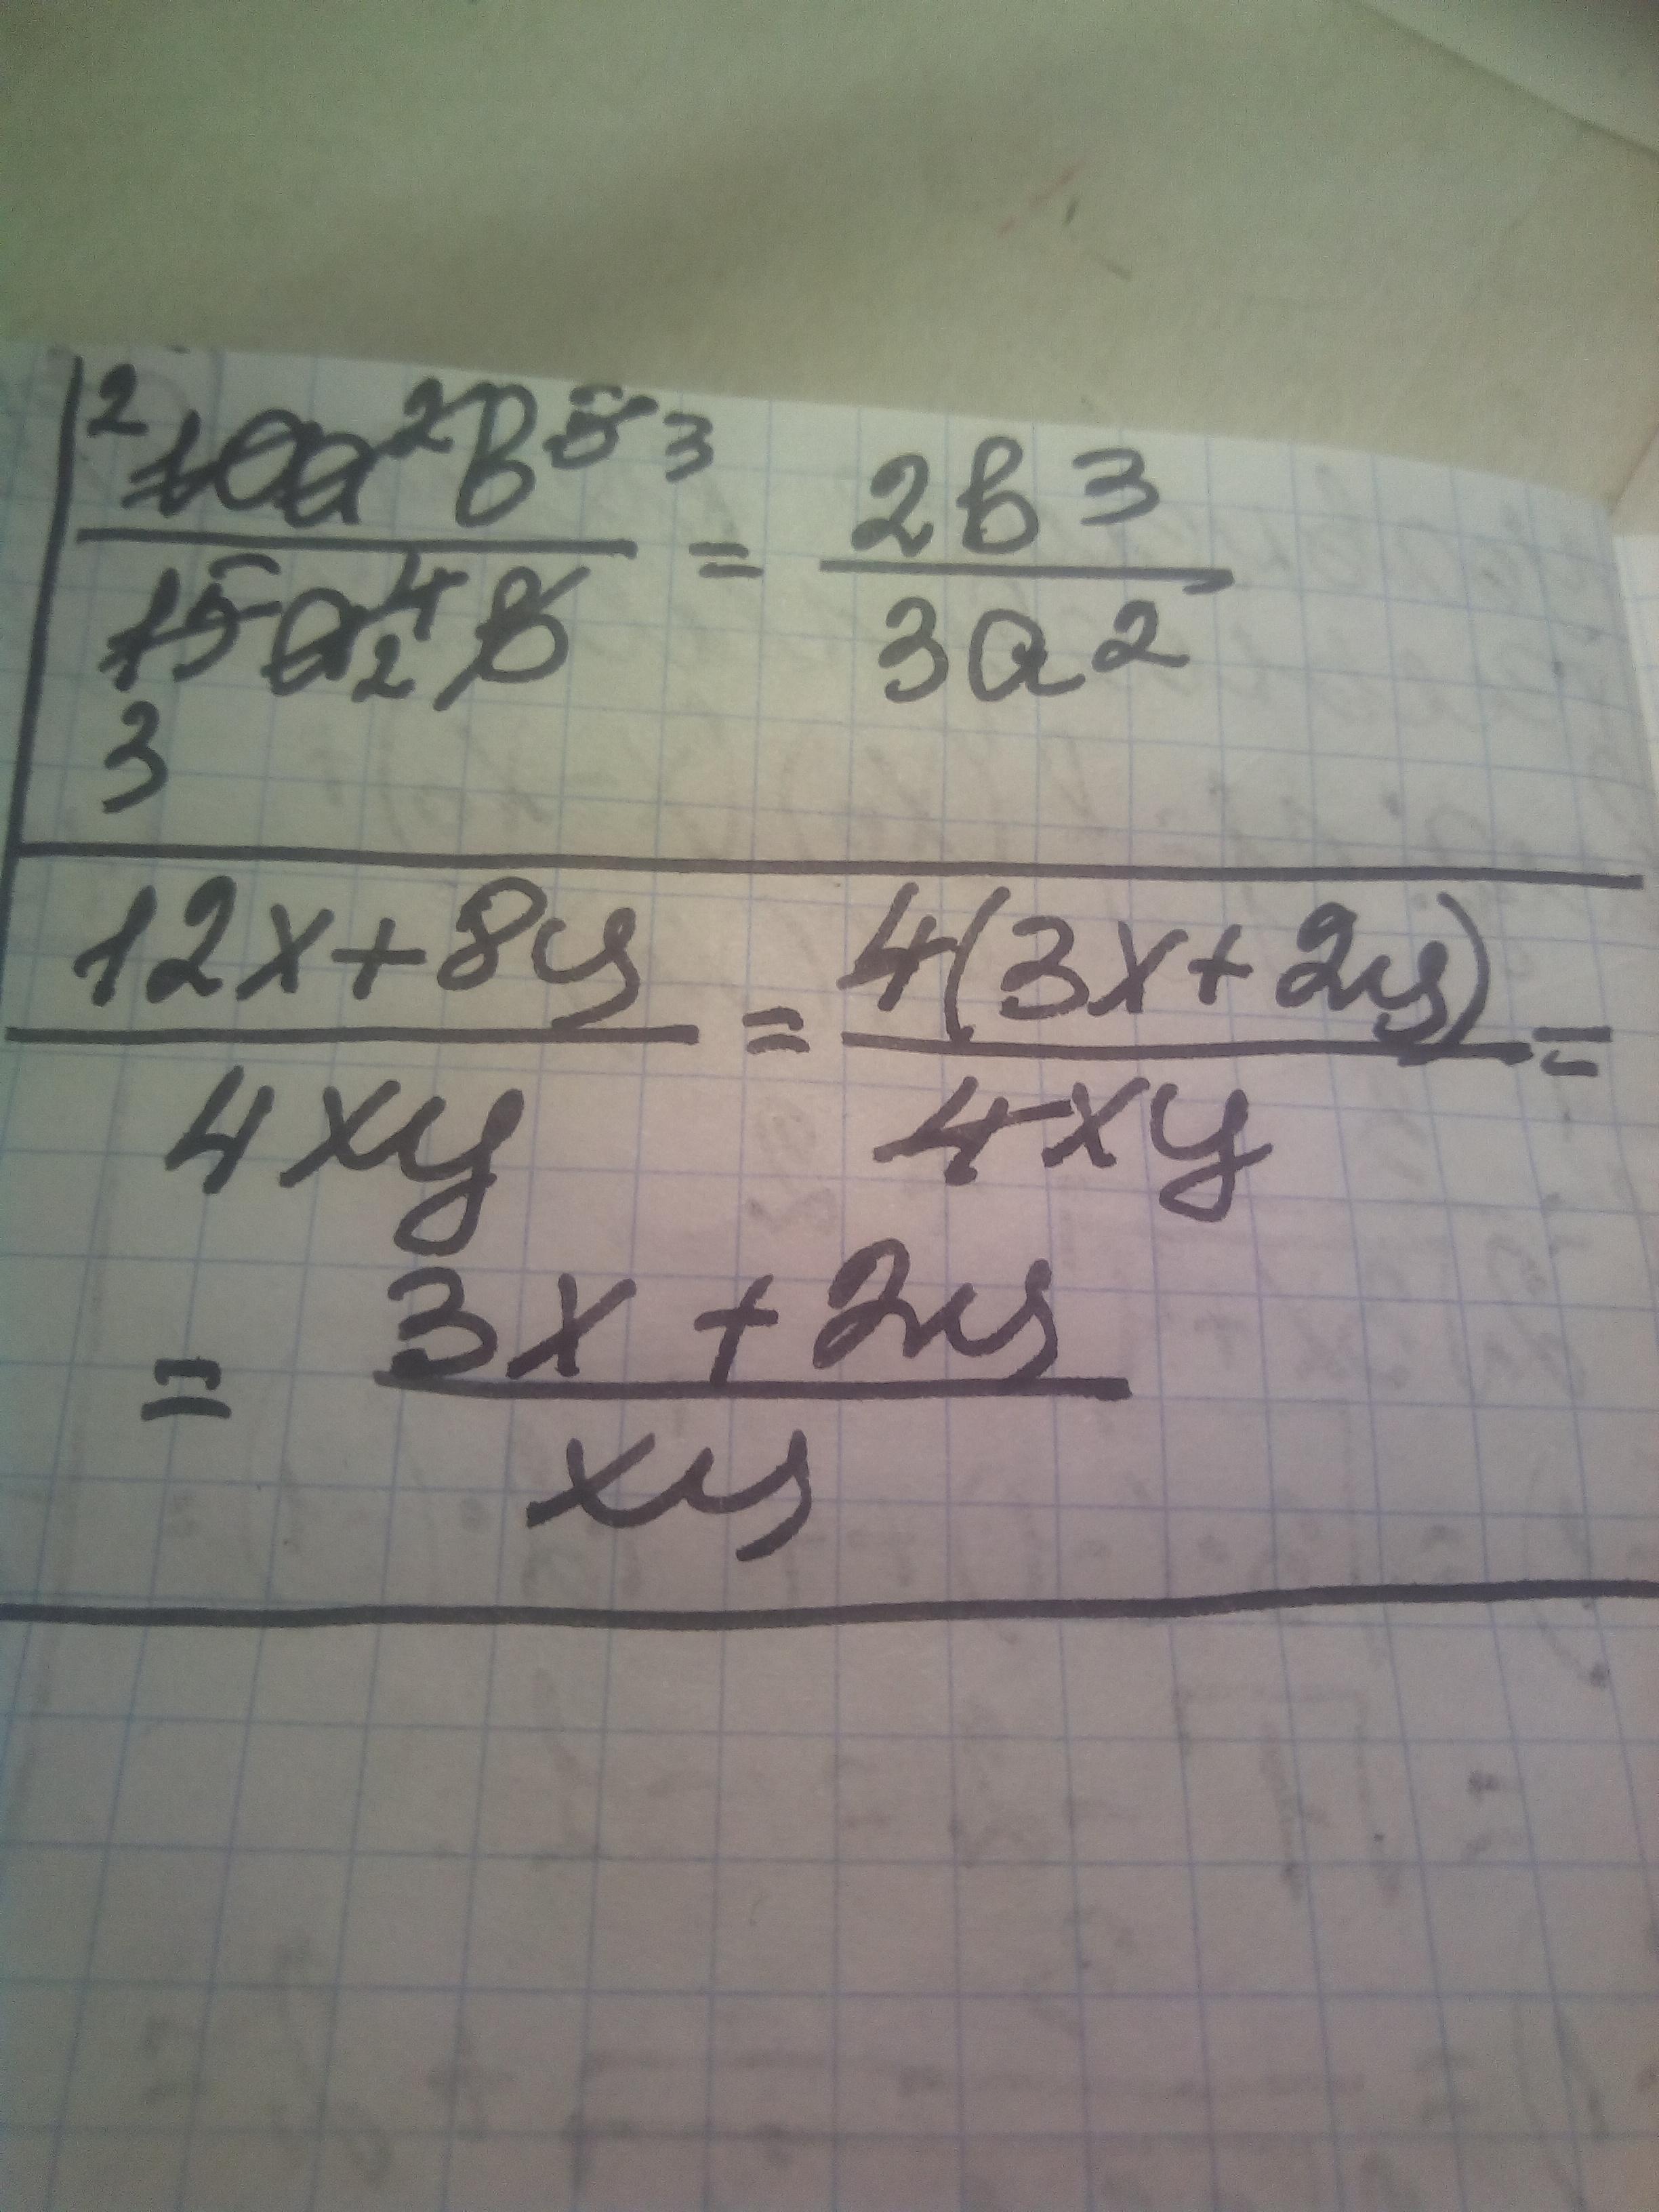 2 10a²b⁵ 3 / 15a⁴ 2 b 3 = 2b³ / 3a²
(12x+8y) / 4xy = 4(3x+2y) / 4xy =
= (3x+2y) / xy